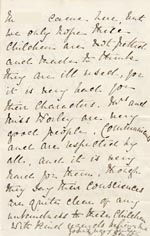 came, here, but
we only hope these
Children are not petted
and made to think
they are ill used, for
it is very bad for
their characters. Mr and
Miss Horley are very
good people,
and are respected by
all, and it is very
hard for them. though
they say their consciences
are quite clear of any
unkindness to these Children
With kind regards